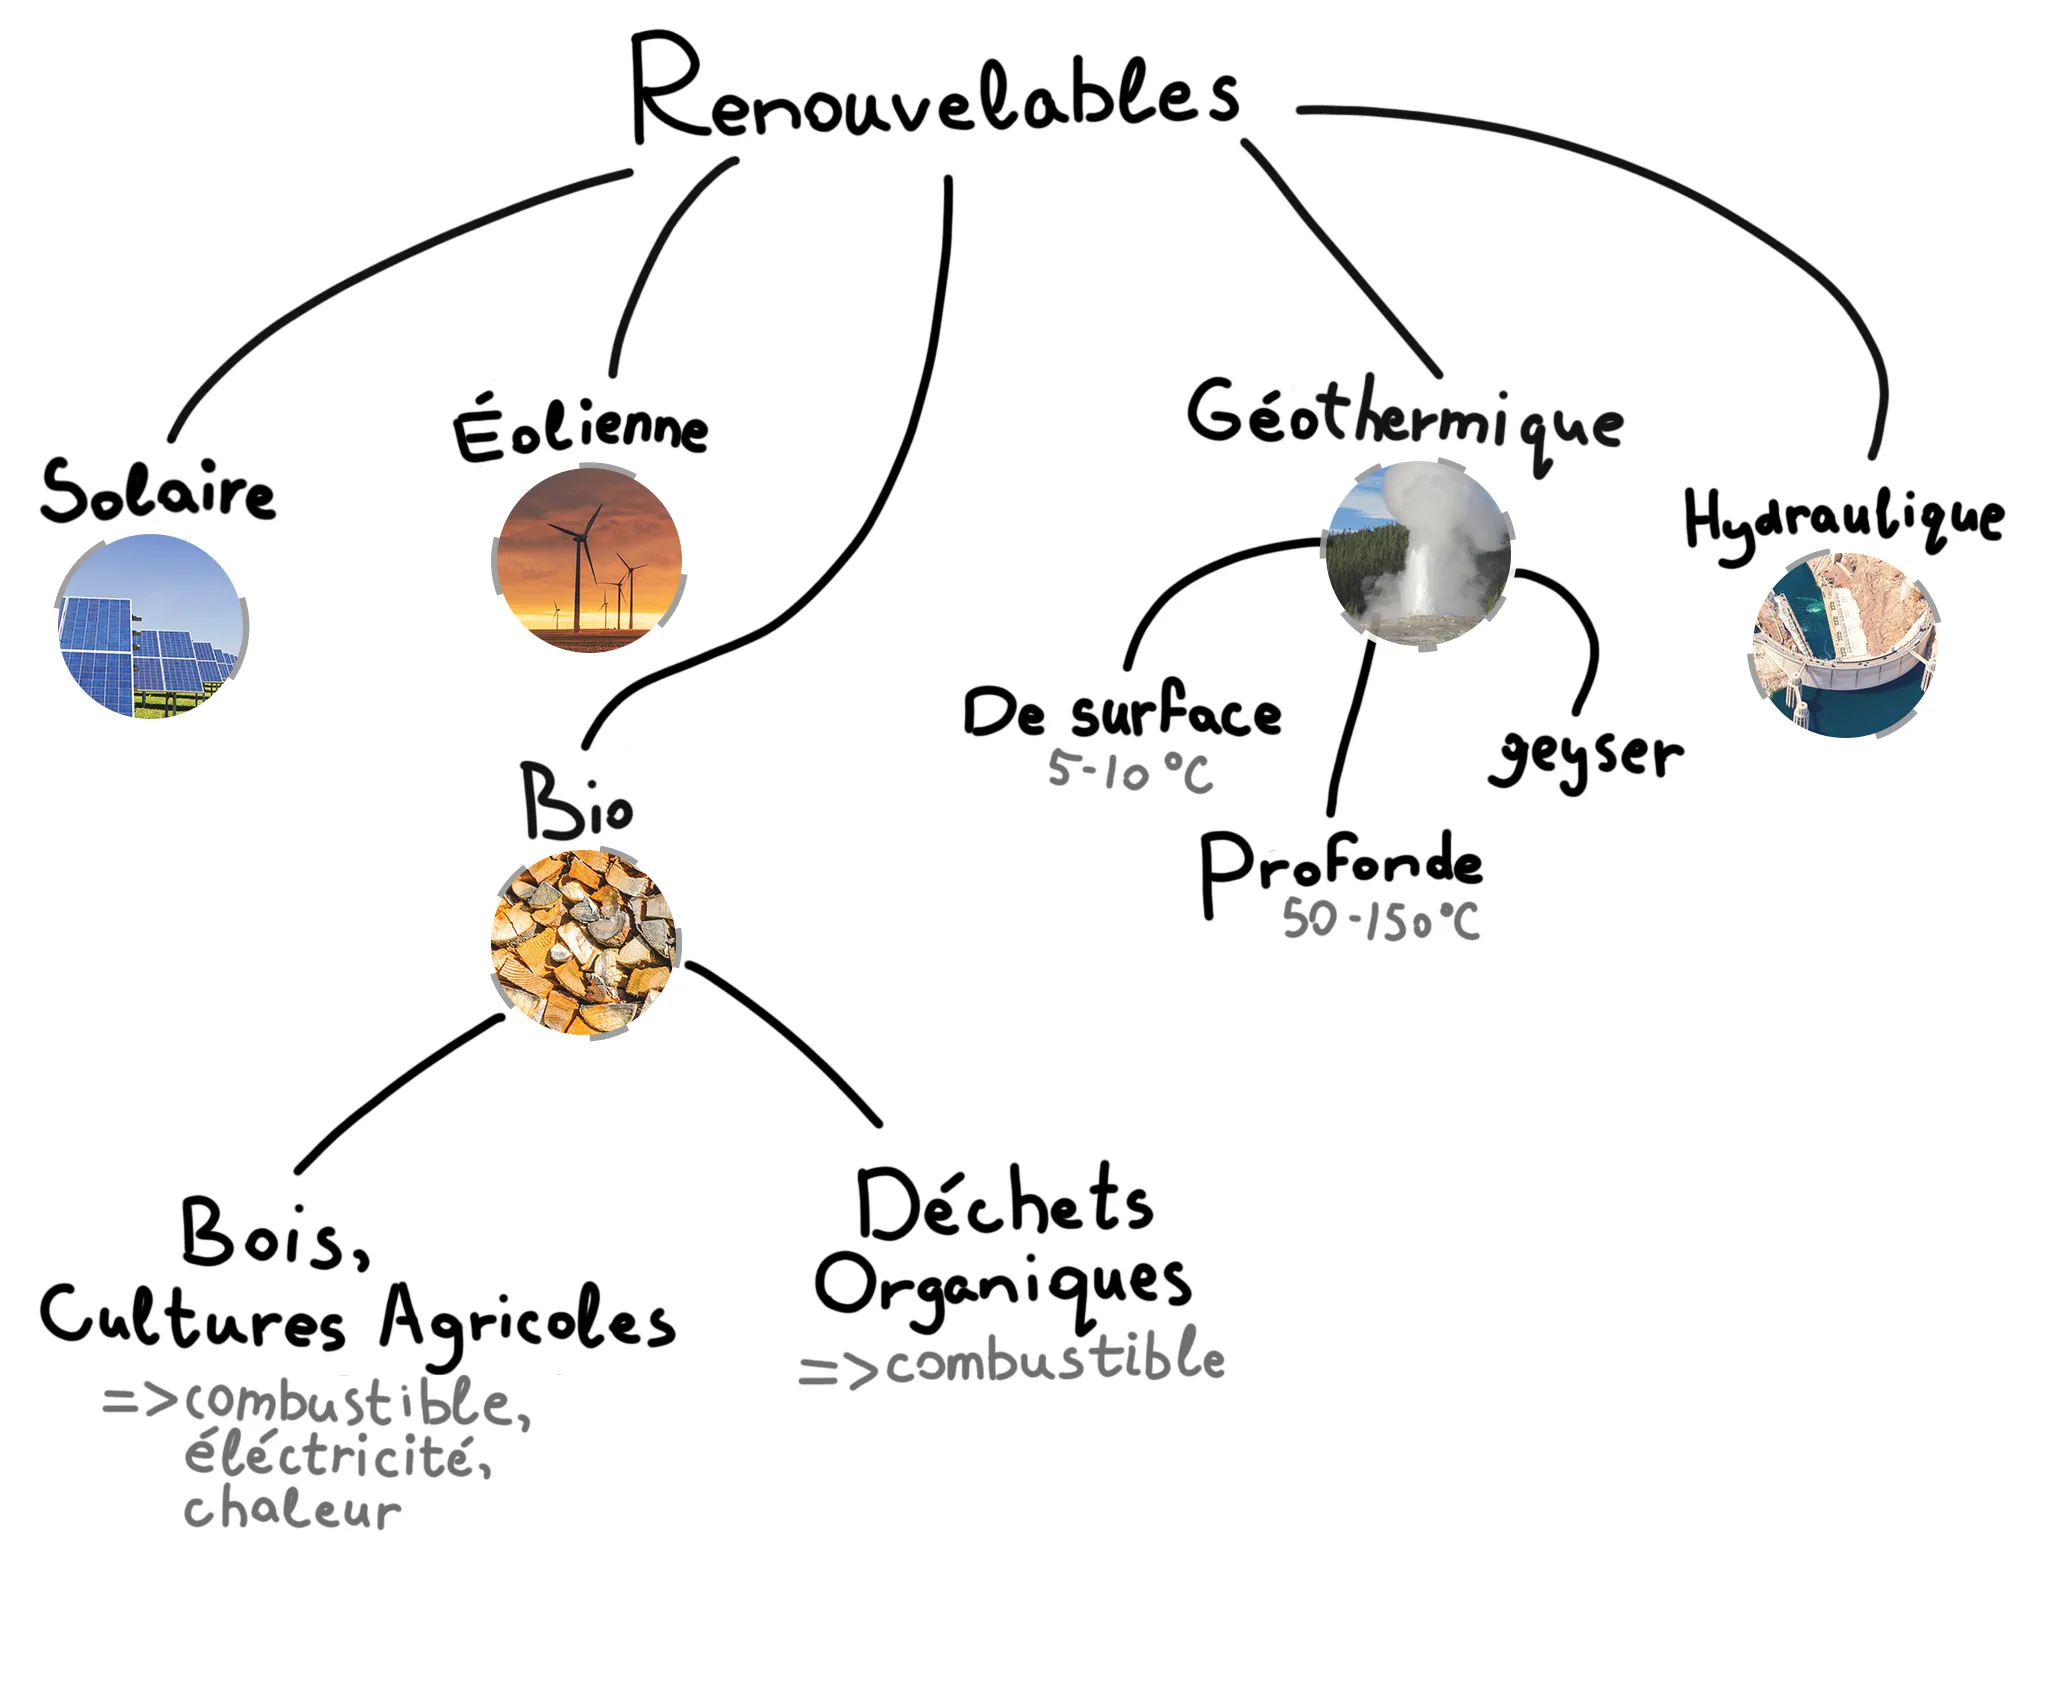 Renouvelables
Solaire
Éolienne
Bio
Bois,
Cultures Agricoles
=>combustible,
éléctricité,
chaleur
Déchets
Organiques
=>combustible
Géothermique
De surface
5-10°C
Profonde
50-150°C
geyser
Hydraulique